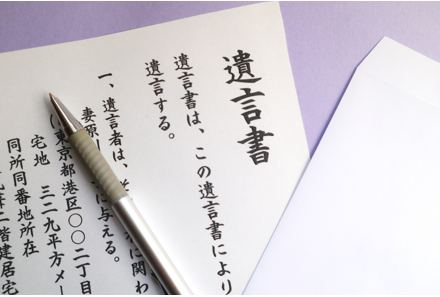 遺言書
遺言書は、この遺言書により
遺言する。
一、遺言者は、 に関わ
妻原 に与える。
(東京都港区〇〇二丁目
宅地 三二九平方メー
同所同番地所在
二階建居宅